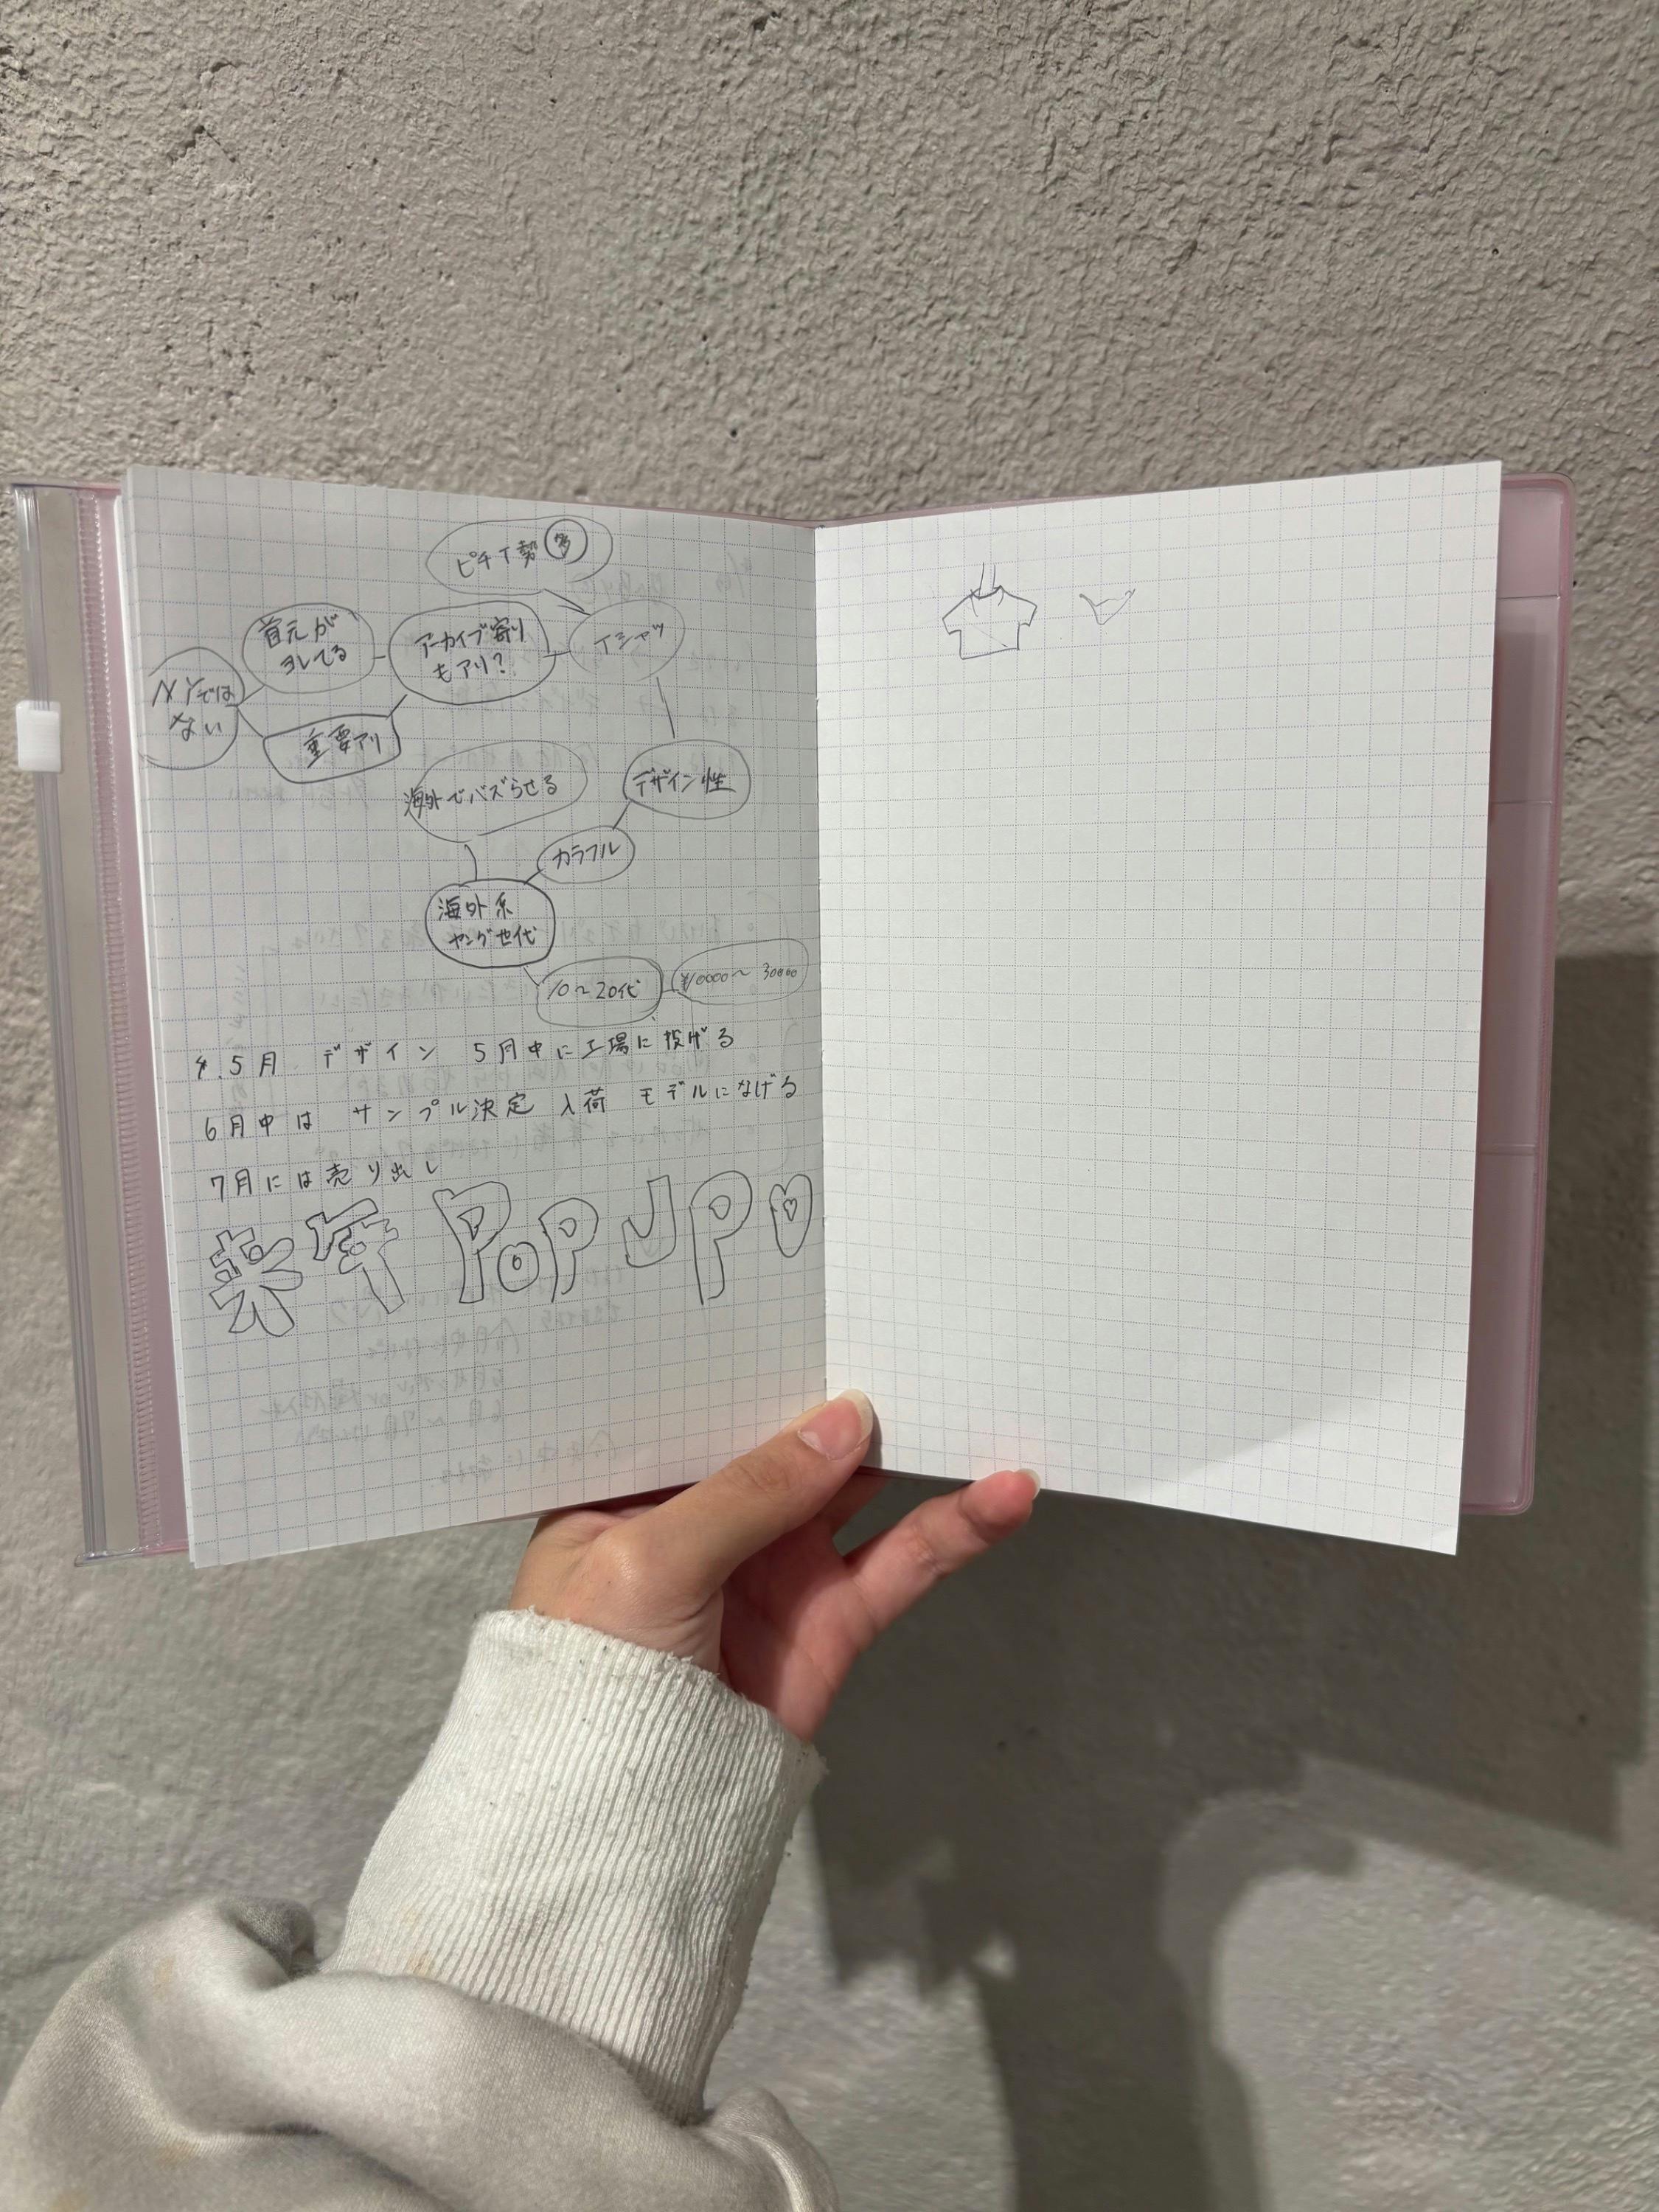 ピチT勢 多
Tシャツ
アーカイブ寄り
もアリ?
首元が
ヨレてる
NYでは
ない
重要アリ
デザイン性
カラフル
海外でバズらせる
海外系
ヤング世代
10〜20代
¥10000〜30000
4.5月 デザイン 5月中に工場に投げる
6月中は サンプル決定 入荷 モデルになげる
7月には売り出し
来年 POP JP